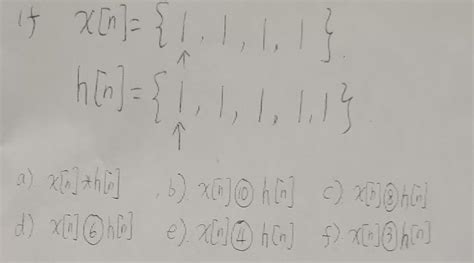 if x[n]={1, 1, 1, 1}.
↑
h[n]={1, 1, 1, 1, 1}
↑
a) x[n]*h[n] b) x[n]⑩h[n] c) x[n]⑧h[n]
d) x[n]⑥h[n] e) x[n]④h[n] f) x[n]⑤h[n]